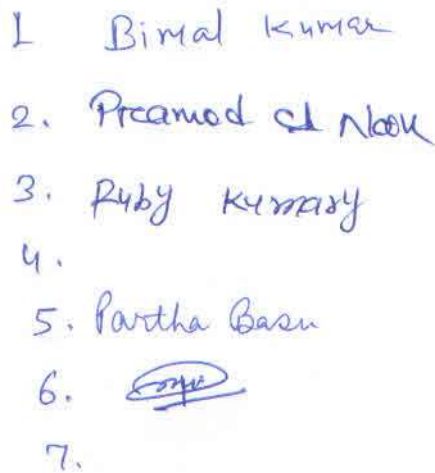 1 Bimal Kumar
2. Pramod
3. Ruby Kumary
4.
5. Partha Basu
6.
7.